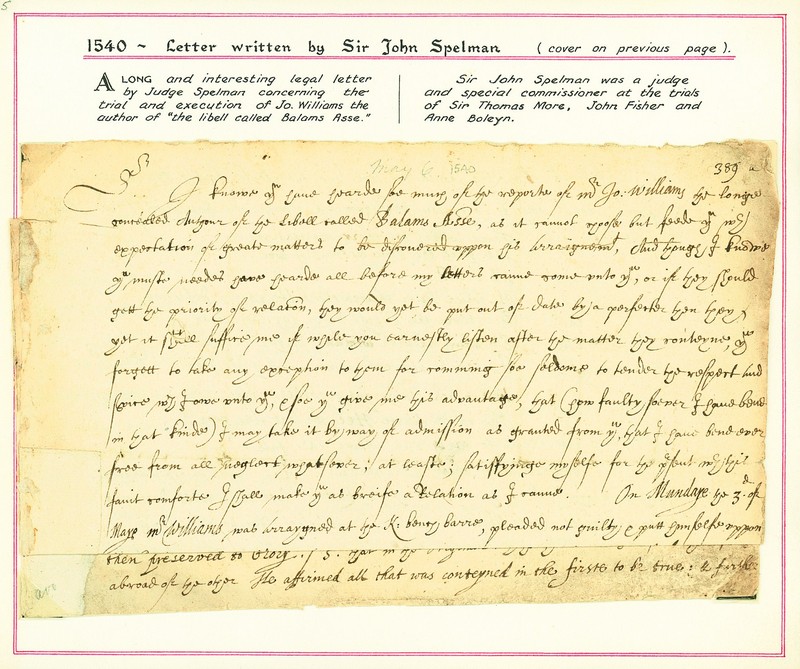 5
1540 ~ Letter written by Sir John Spelman ( cover on previous page ).
A LONG and interesting legal letter
by Judge Spelman concerning the
trial and execution of Jo. Williams the
author of "the libell called Balams Asse."
Sir John Spelman was a judge
and special commissioner at the trials
of Sir Thomas More, John Fisher and
Anne Boleyn.
May 6 1540
389
Sr I knowe yu have hearde soe much of the reporte of mr Jo: Williams the longe
concealed Authour of the Libell called Balams Asse, as it cannot choose but feede yu wth
expectation of greate matters to be discovered uppon his arraignemt, And though I knowe
yu muste needes have hearde all before my letters cann come vnto yu, or if they should
gett the priority of relacõn, they would yet be put out of date by a perfecter then they,
yet it shall suffice me if while you earnestly listen after the matter they conteyne, yu
forgett to take any exception to them for comming soe seldome to tender the respect and
service wch I owe vnto yu, & soe yu give me this advantage, that (how faulty soever I have bene
in that kinde) I may take it by way of admission as granted from yu, that I have bene ever
free from all neglect whatsoever; at leaste; satisfyinge myselfe for the psent wth this
faint comforte I shall make yu as breife a Relation as I canne. On Munday the 3d of
Maye mr Williams was arraygned at the K: bench barre, pleaded not guilty & putt himselfe uppon
then preserved to Glory
abroad of the other He affirmed all that was conteyned in the firste to be true: & further